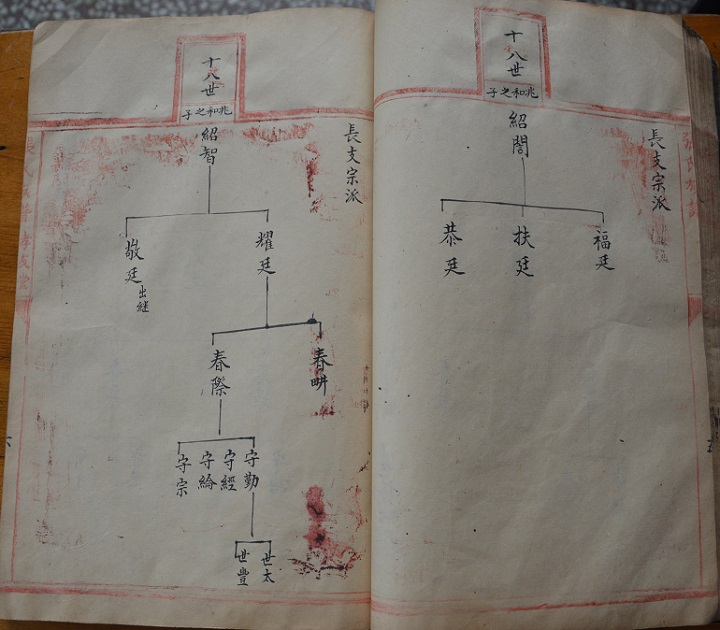 十八世
兆和之子
長支宗派
紹閤
福廷
扶廷
恭廷
十八世
兆和之子
長支宗派
紹智
耀廷
敬廷
出继
春畊
春際
守勤
守經
守綸
守宗
世太
世豐